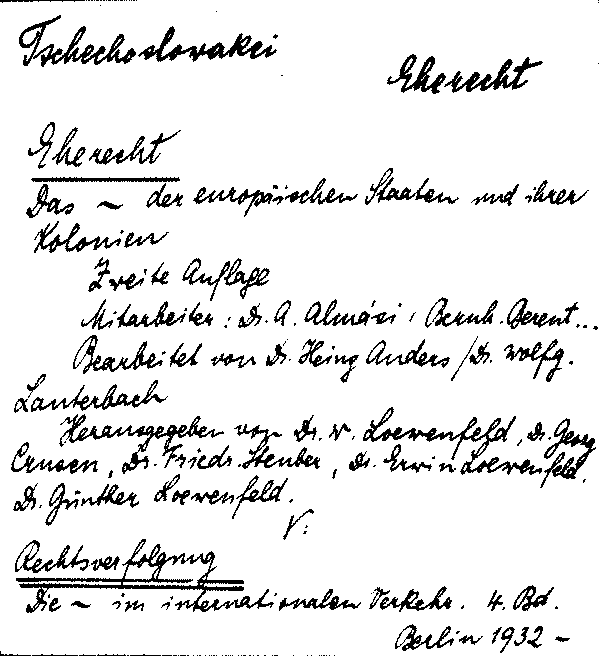 Tschechoslovakei
Eherecht
Eherecht
Das ~ der europäischen Staaten und ihrer
Kolonien
Zweite Auflage
Mitarbeiter: Dr. A. Almási, Bernh. Berent...
Bearbeitet von Dr. Heinz Anders / Dr. Wolfg.
Lauterbach
Herausgegeben von Dr. W. Loewenfeld, Dr. Georg
Crusen, Dr. Friedr. Steuber, Dr. Erwin Loewenfeld,
Dr. Günther Loewenfeld.
V:
Rechtsverfolgung
Die ~ im internationalen Verkehr. 4. Bd.
Berlin 1932 -